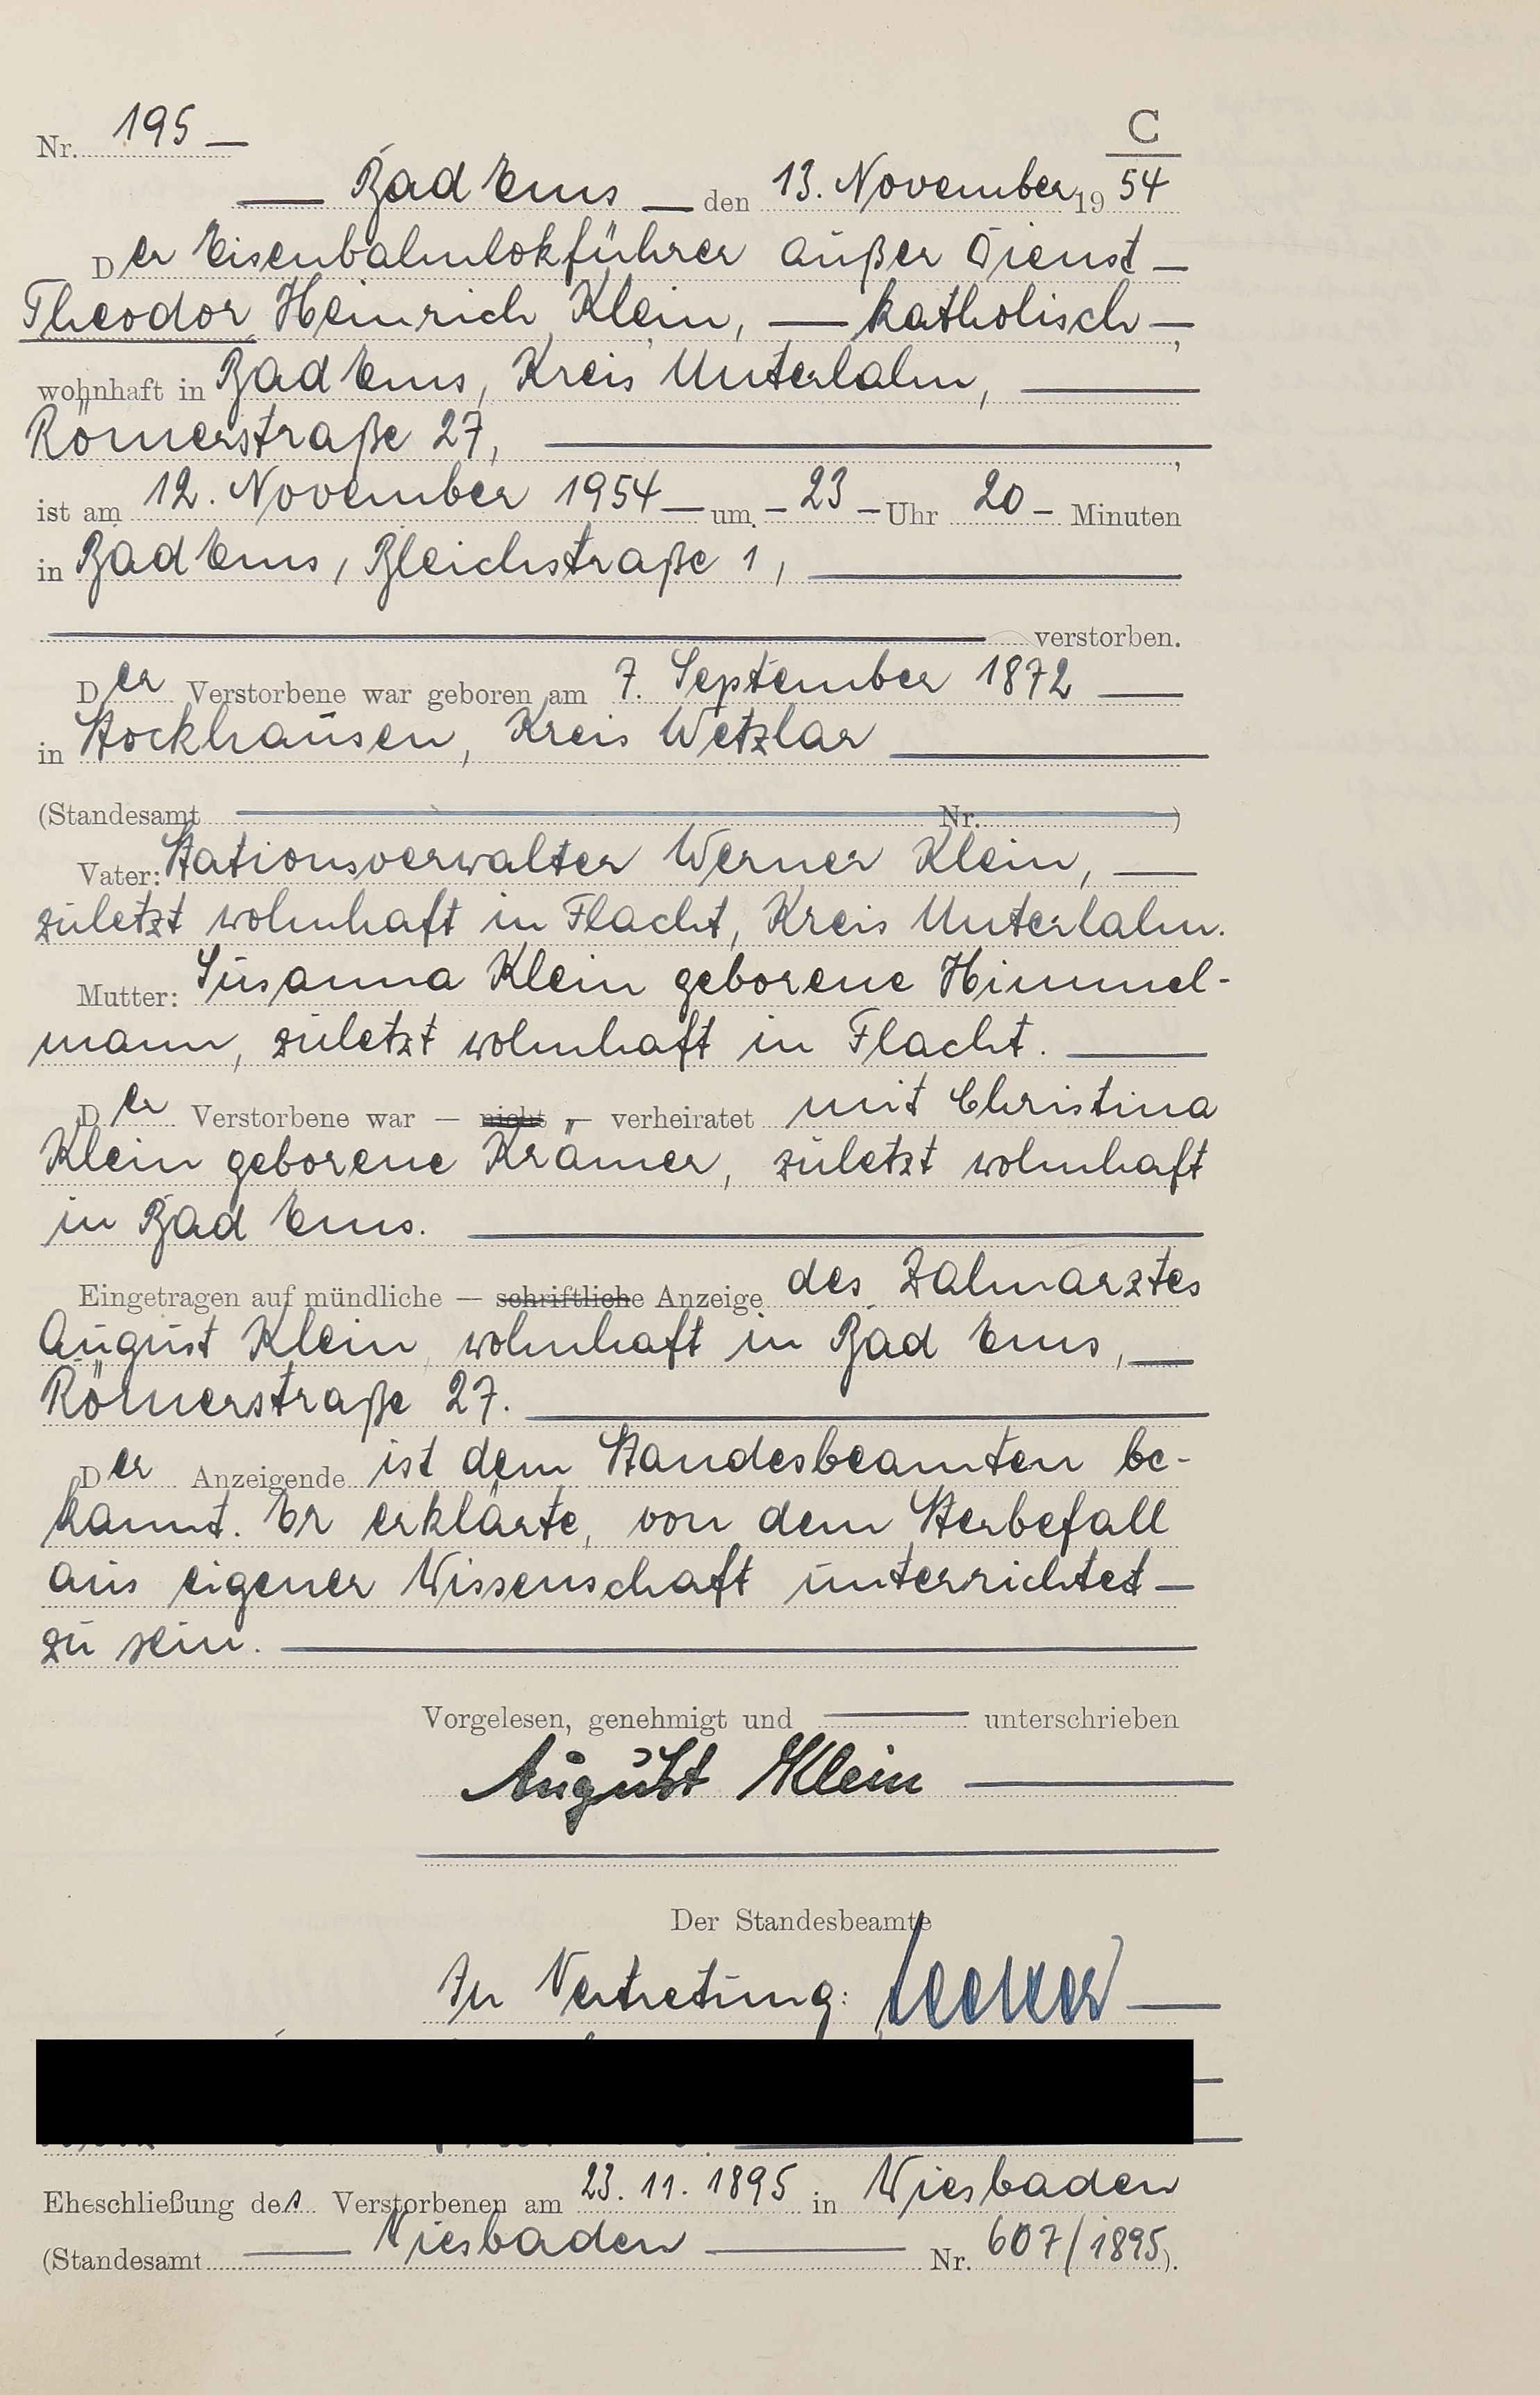 Nr. 195 —
C
— Bad Ems — den 13. November 1954
Der Eisenbahnlokführer außer Dienst —
Theodor Heinrich Klein, — katholisch —,
wohnhaft in Bad Ems, Kreis Unterlahn, —
Römerstraße 27, —,
ist am 12. November 1954 — um — 23 — Uhr 20 — Minuten
in Bad Ems, Bleichstraße 1, —
— verstorben.
Der Verstorbene war geboren am 7. September 1872 —
in Stockhausen, Kreis Wetzlar —
(Standesamt — Nr. —)
Vater: Stationsverwalter Werner Klein, —
zuletzt wohnhaft in Flacht, Kreis Unterlahn.
Mutter: Susanna Klein geborene Himmel-
mann, zuletzt wohnhaft in Flacht. —
Der Verstorbene war — nicht — verheiratet mit Christina
Klein geborene Krämer, zuletzt wohnhaft
in Bad Ems. —
Eingetragen auf mündliche — schriftliche Anzeige des Zahnarztes
August Klein, wohnhaft in Bad Ems, —
Römerstraße 27. —
Der Anzeigende ist dem Standesbeamten be-
kannt. Er erklärte, von dem Sterbefall
aus eigener Wissenschaft unterrichtet —
zu sein. —
Vorgelesen, genehmigt und — unterschrieben
August Klein —
Der Standesbeamte
In Vertretung: —
Eheschließung des Verstorbenen am 23. 11. 1895 in Wiesbaden
(Standesamt — Wiesbaden — Nr. 607/1895).